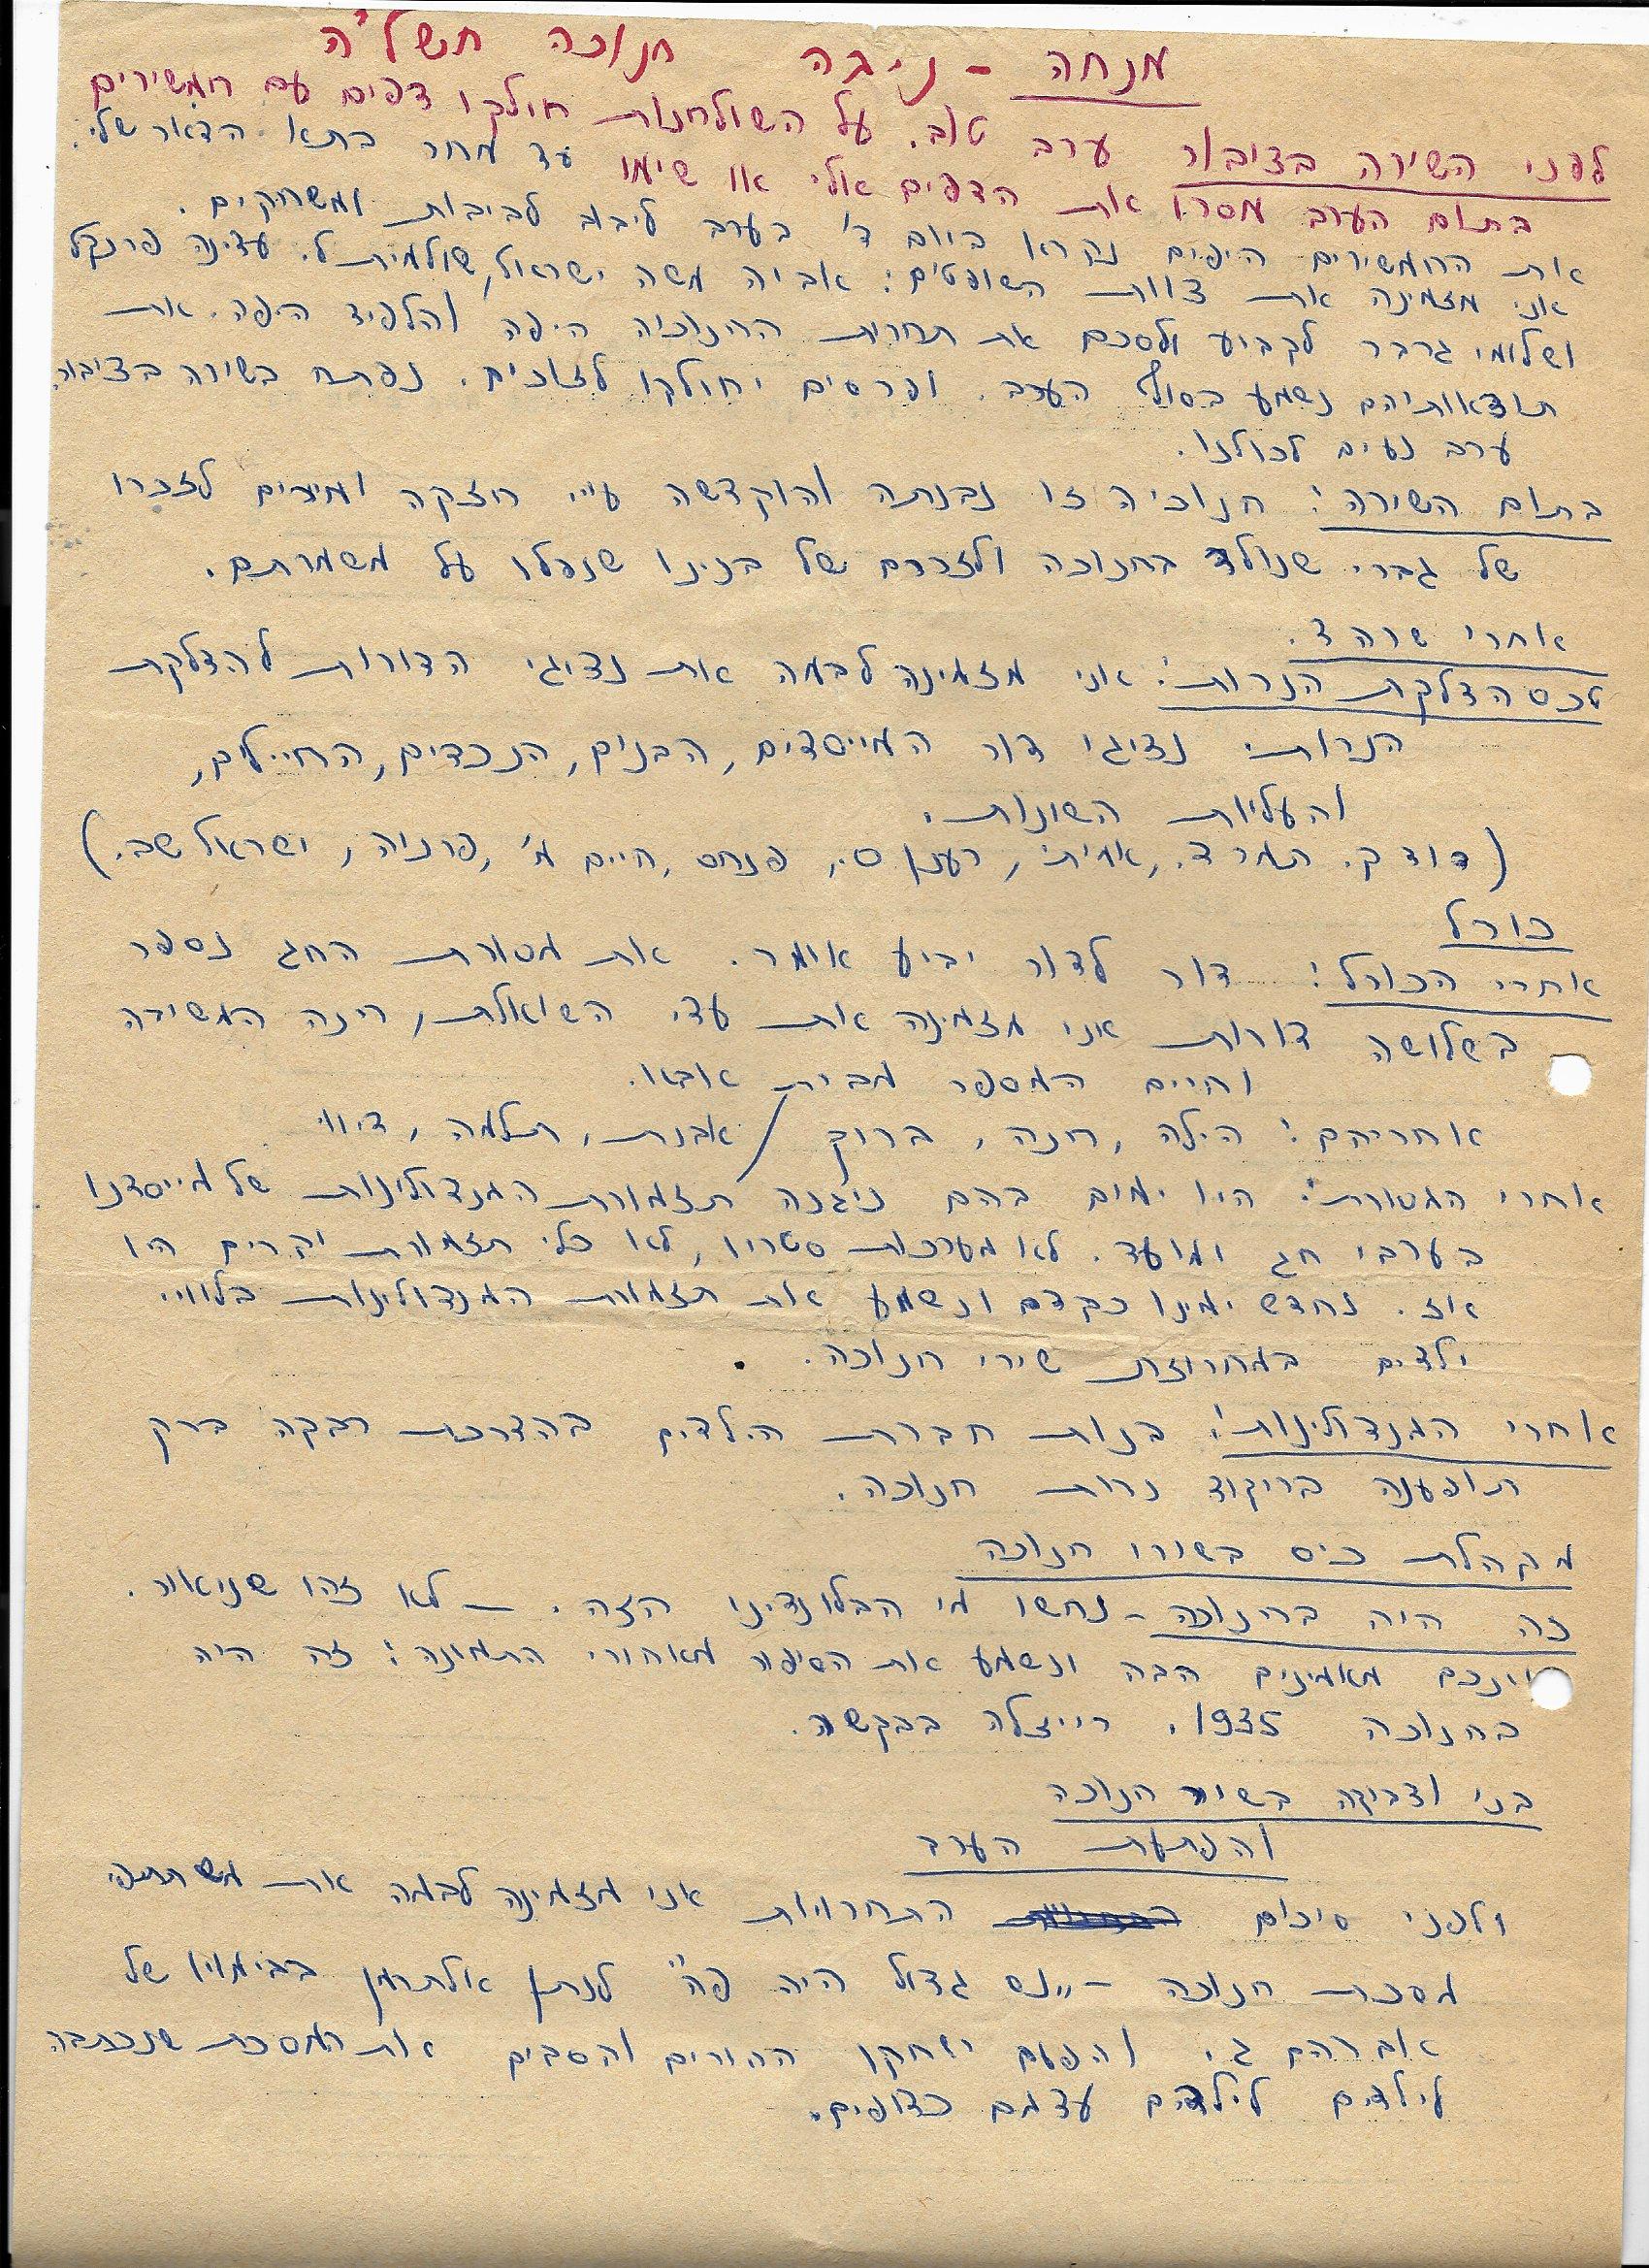 מנחה - ניגה חנוכה תשל"ה
לפני השירה בציבור ערב טוב. על השולחנות חולקו דפים עם חמשירים
בתום הערב מסרו את הדפים אלי או שימו עד מחר בתא הדאר שלי.
את החמשירים היפים נקרא ביום ד' בערב ליבוב לביבות ומשחקים.
אני מזמינה את צוות השופטים: אביה משה ישראל, שולמית ל. עדינה פרנקל
ושלומי גרבר לקביע ולסכם את תחרות החנוכיה היפה והלפיד היפה. את
תוצאותיהם נשמע בסוף הערב. ופרסים יחולקו לזוכים. נפתח בשירה בציבור.
ערב נעים לכולנו.
בתום השירה: חנוכיה זו נבנתה והוקדשה ע"י חזקה ומרים לזכרו
של גברי שנולד בחנוכה ולזכרם של בנינו שנפלו על משמרתם.
אחרי שרה צ.
טכס הדלקת הנרות: אני מזמינה לבמה את נציגי הדורות להדלקת
הנרות: נציגי דור המייסדים, הבנים, הנכדים, החיילים,
והעליות השונות.
(דוד ק. תמר צ., אמיתי, רענן ס., פנחס, חיים מ', פרניה, ישראל שב.)
כורל
אחרי הכורל: דור לדור יביע אומר. את מסורת החג נספר
בשלושה דורות אני מזמינה את עדי השואלת, רינה המשירה
וחיים המספר מבית אבא.
אחריהם: הילה, חנה, ברוך / אבנת, תלמה, דיווי
אחרי המסורת: היו ימים בהם ניגנה תזמורת המנדולינות של מייסדנו
בערבי חג ומועד. לא מערכות סטריו, לא כלי תזמורת יקרים היו
אז. נחדש ימינו כקדם ונשמע את תזמורת המנדולינות בלוויי
ילדים במחרוזת שירי חנוכה.
אחרי המנדולינות: בנות חברת הילדים בהדרכת רבקה ברק
תופענה בריקוד נרות חנוכה.
מקהלת כיס בשורו חנוכה
זה היה בחנוכה - נחשו מי הבלונדיני הזה. - לא זהו שניאור.
אינכם מאמינים הבה ונשמע את הסיפור מאחורי התמונה: זה היה
בחנוכה 1935. רייזלה בבקשה.
בני וצביקה בשיר חנוכה
והפתעת הערב
ולפני סיכום התחרויות אני מזמינה לבמה את משתתפי
מסכת חנוכה - "נס גדול היה פה" לנתן אלתרמן בבימויו של
אברהם ג. והפעם ישחקו ההורים והסבים את המסכת שנכתבה
לילדים לילדים עצמם כצופים.